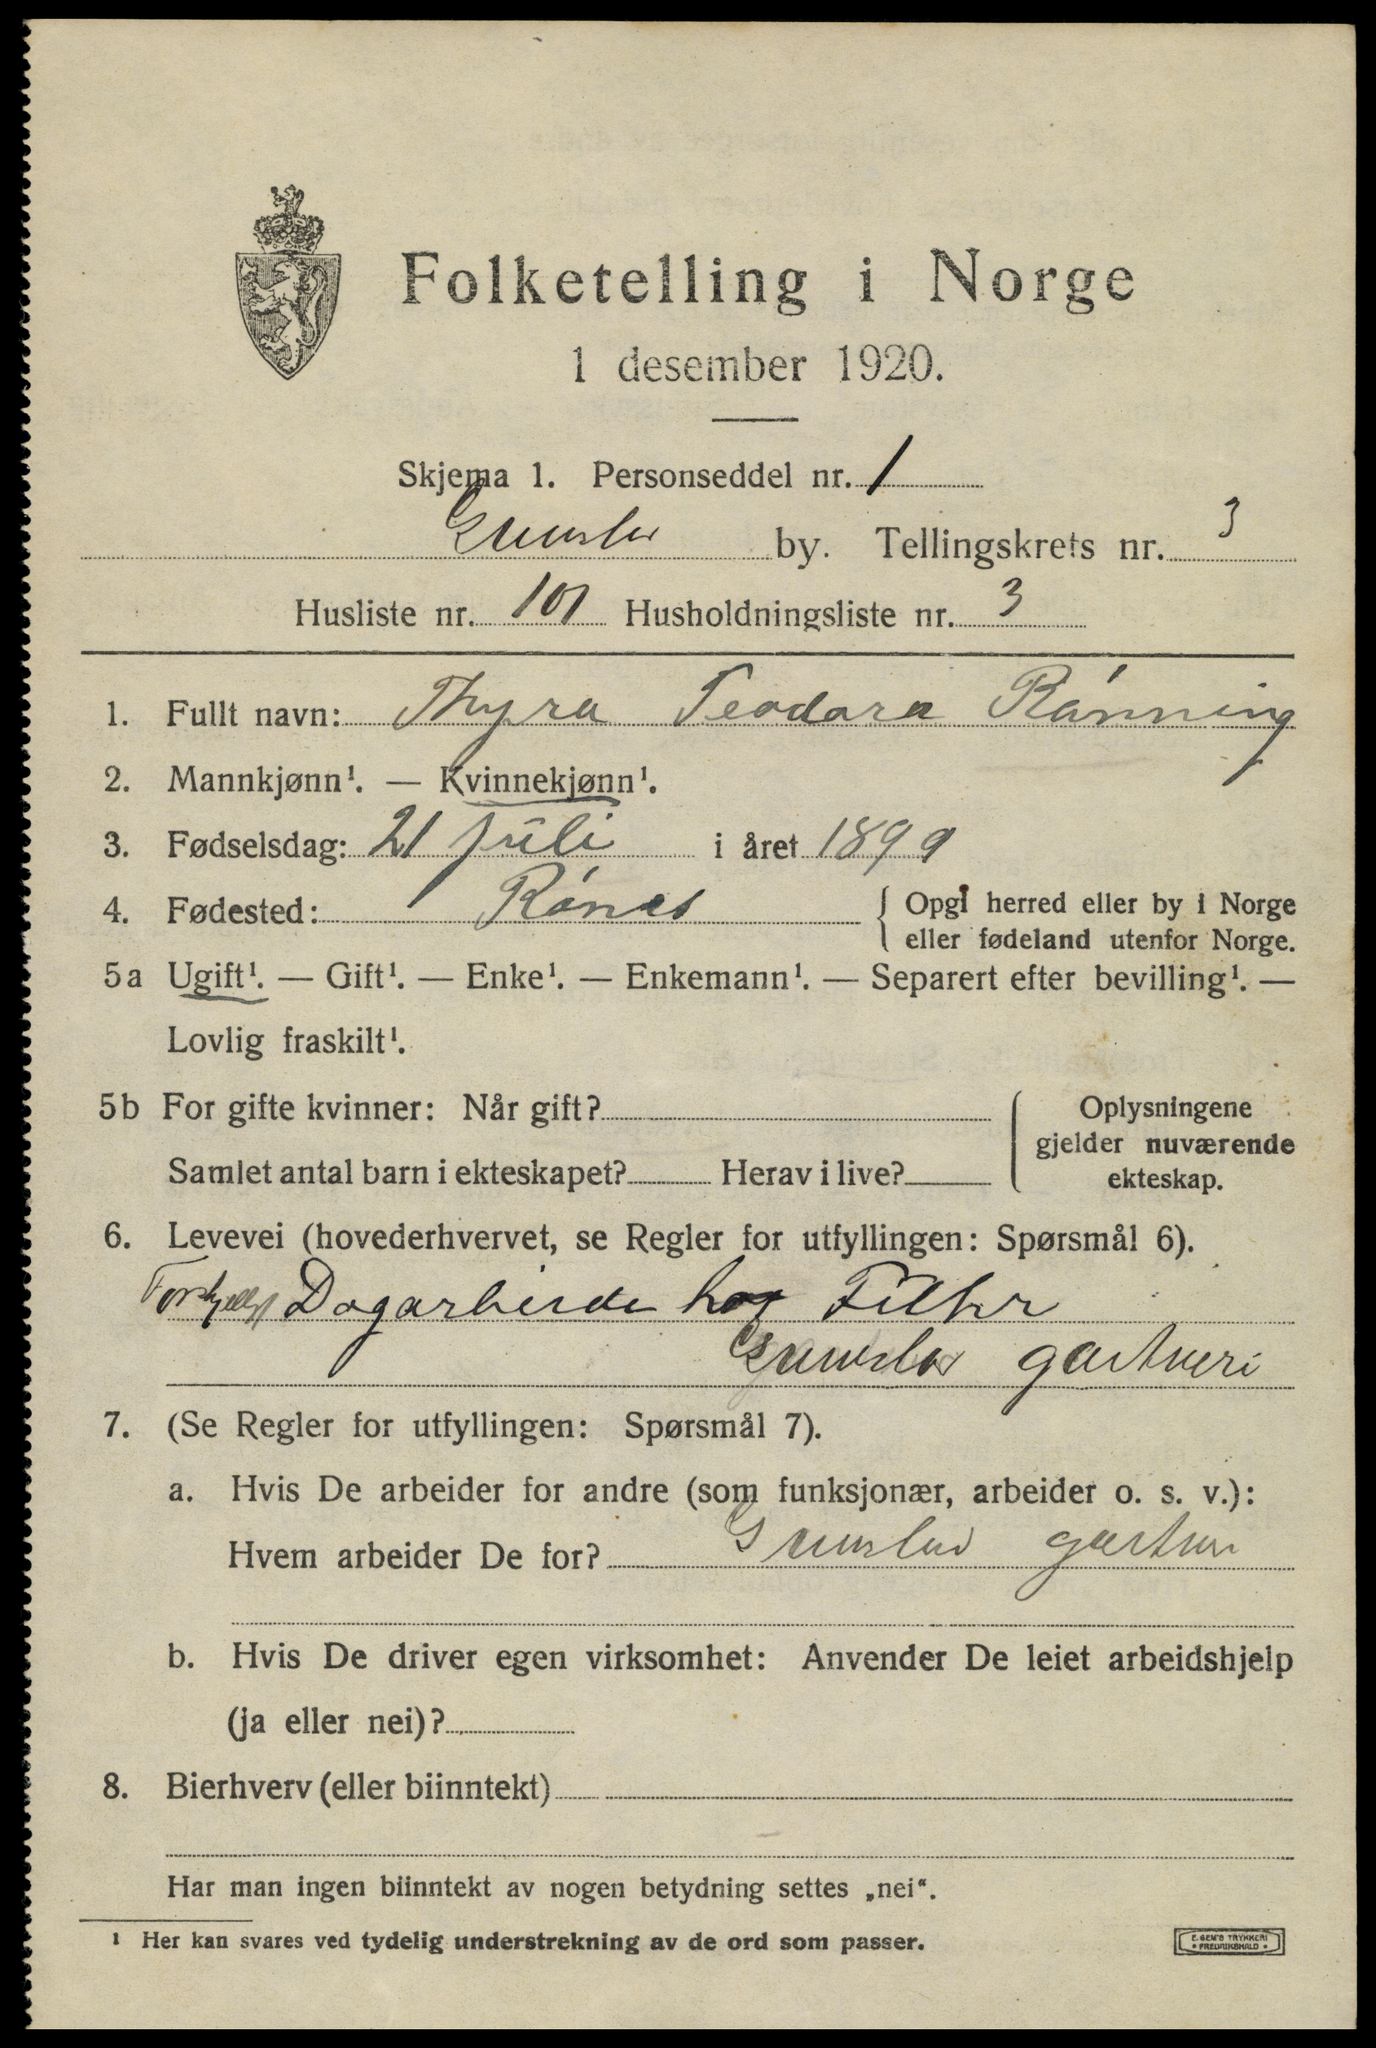 Folketelling i Norge
1 desember 1920.
Skjema 1. Personseddel nr. 1
by. Tellingskrets nr. 3
Husliste nr. 101 Husholdningsliste nr. 3
1. Fullt navn: Thyra Teodora Rónning
2. Mannkjønn¹. — Kvinnekjønn¹.
3. Fødselsdag: 21 juli i året 1899
4. Fødested: Rónes { Opgi herred eller by i Norge
eller fødeland utenfor Norge.
5a Ugift¹. — Gift¹. — Enke¹. — Enkemann¹. — Separert efter bevilling¹. —
Lovlig fraskilt¹.
5b For gifte kvinner: Når gift? { Oplysningene
gjelder nuværende
Samlet antal barn i ekteskapet? Herav i live? ekteskap.
6. Levevei (hovederhvervet, se Regler for utfyllingen: Spørsmål 6).
Dagarbeide
gartneri
7. (Se Regler for utfyllingen: Spørsmål 7).
a. Hvis De arbeider for andre (som funksjonær, arbeider o. s. v.):
Hvem arbeider De for?
b. Hvis De driver egen virksomhet: Anvender De leiet arbeidshjelp
(ja eller nei)?
8. Bierhverv (eller biinntekt)
Har man ingen biinntekt av nogen betydning settes „nei“.
¹ Her kan svares ved tydelig understrekning av de ord som passer.
E. SEM'S TRYKKERI
• FREDRIKSHALD •